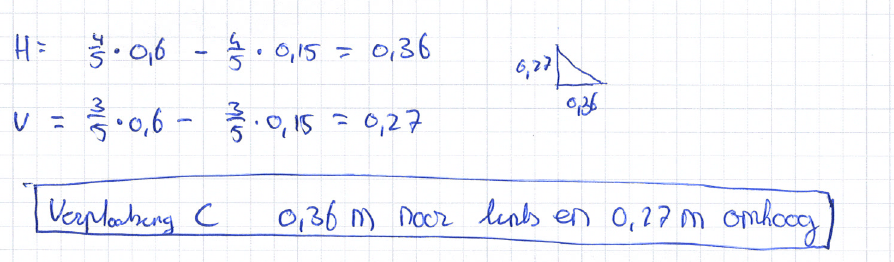 H = 4/5 · 0,6 - 4/5 · 0,15 = 0,36
0,27
0,36
V = 3/5 · 0,6 - 3/5 · 0,15 = 0,27
Verplaatsing C 0,36 m naar links en 0,27 m omhoog